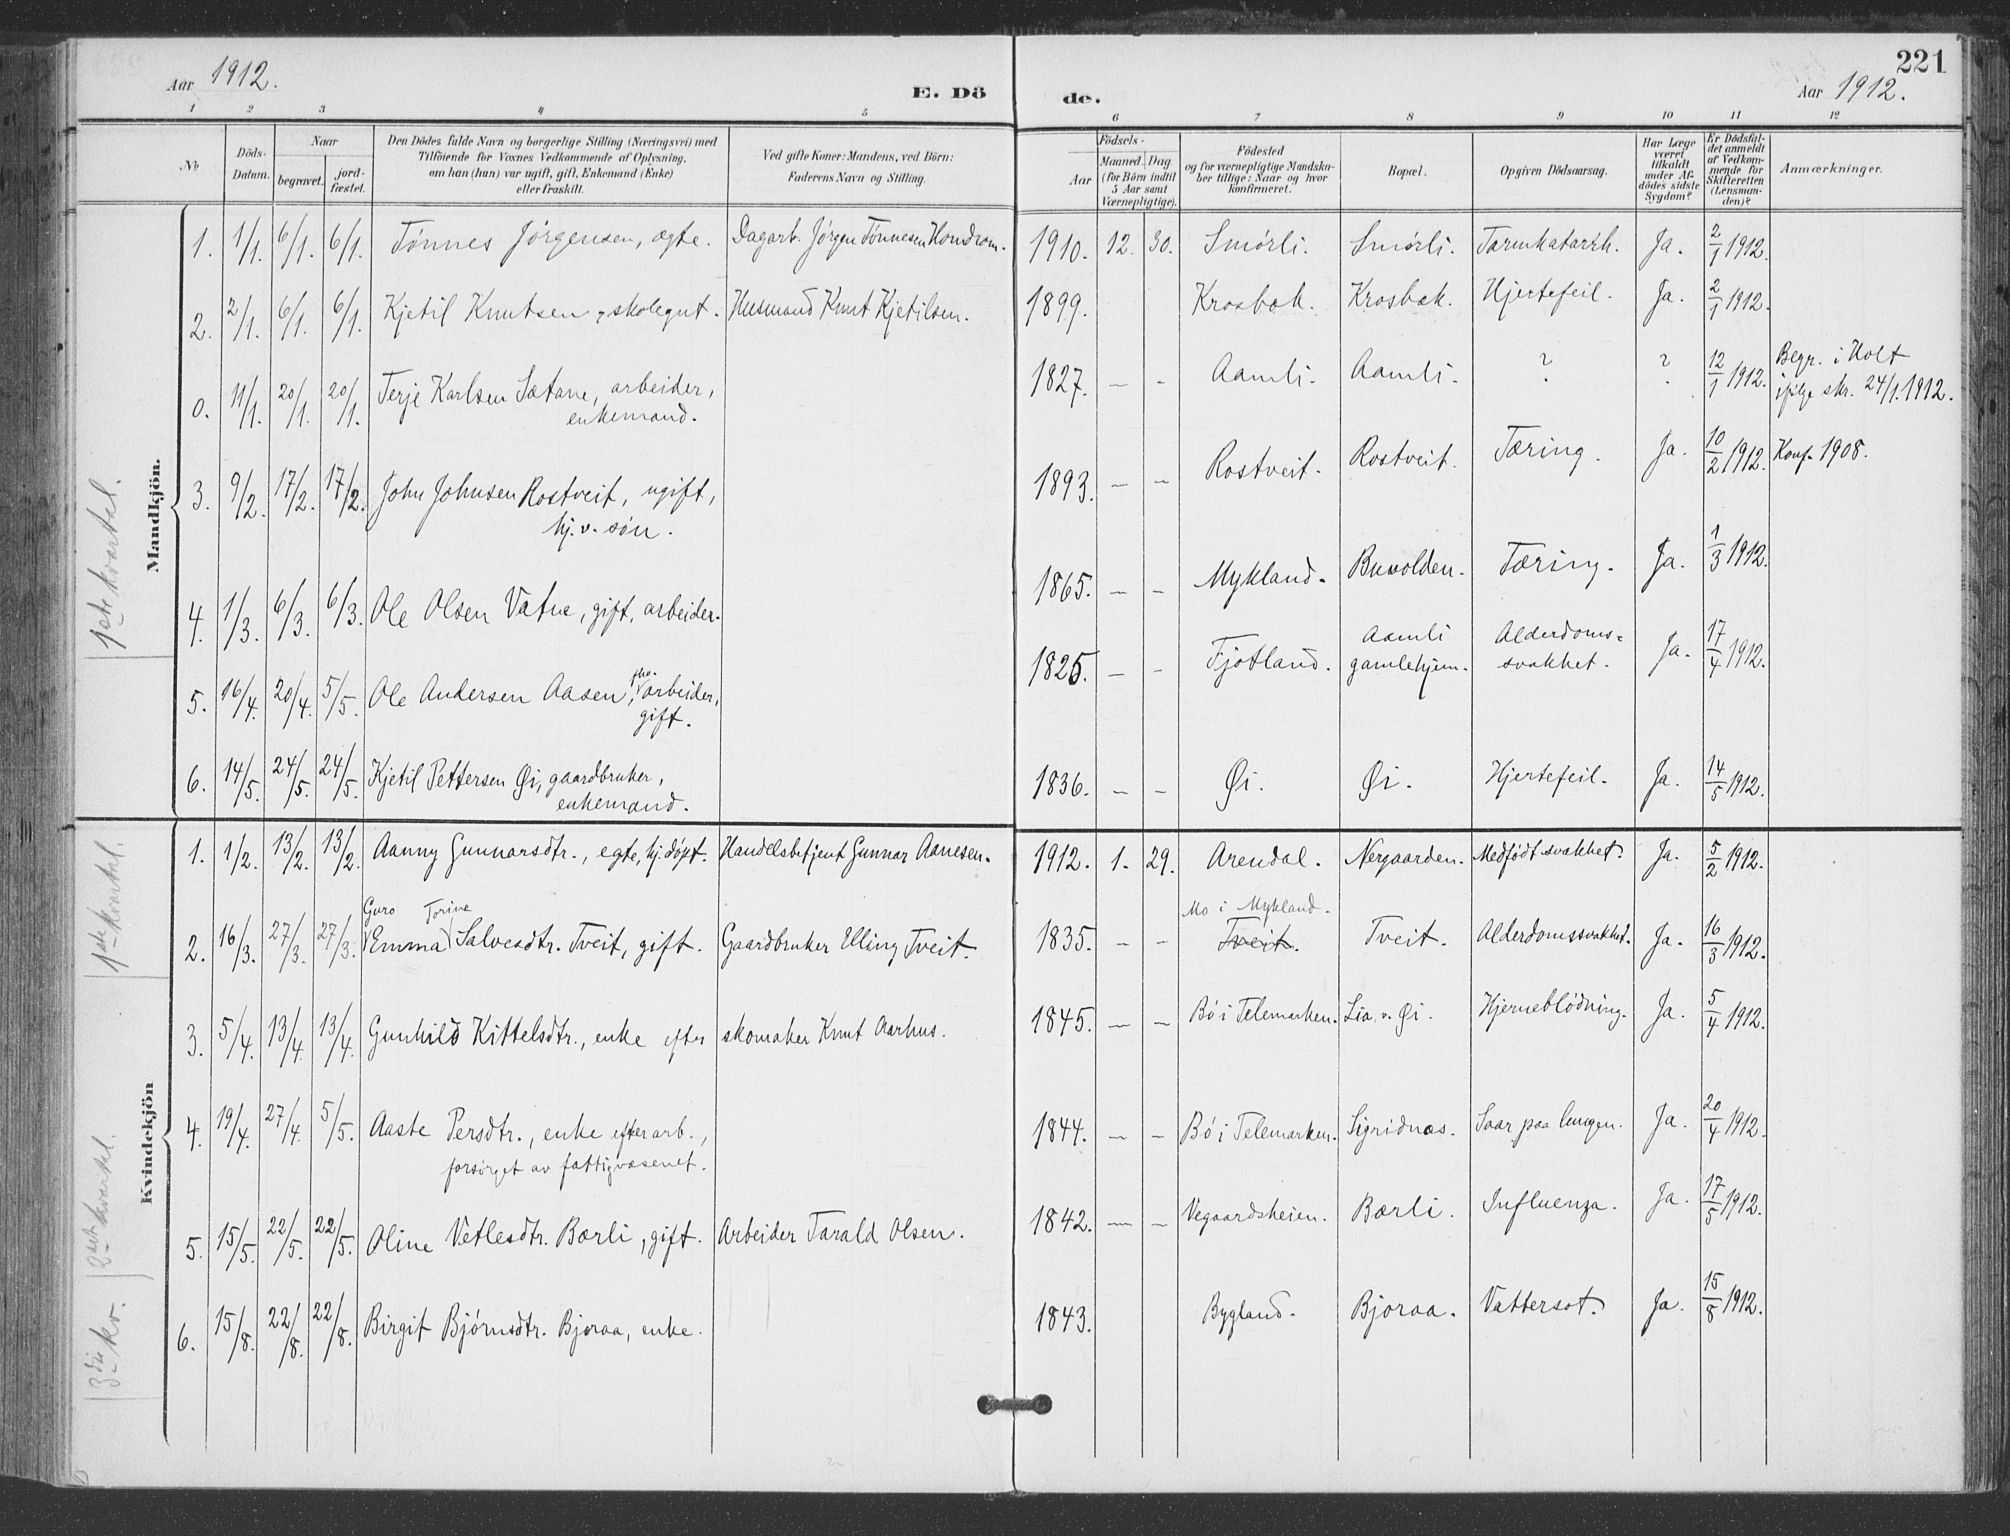 Aar 1912.
E. Dö
de.
Aar 1912.
221
1 2 3 4 5 6 7 8 9 10 11 12
No
Döds-
Datum.
Naar
begravet.
jord-
fæstet.
Den Dödes fulde Navn og borgerlige Stilling (Næringsvei) med
Tilföiende for Voxnes Vedkommende af Oplysning,
om han (hun) var ugift, gift, Enkemand (Enke)
eller fraskilt.
Ved gifte Koner: Mandens, ved Börn:
Faderens Navn og Stilling.
Födsels-
Aar
Maaned. Dag.
(for Börn indtil
5 Aar samt
Værnepligtige).
Födested
og for værnepligtige Mandska-
ber tillige: Naar og hvor
konfirmeret.
Bopæl.
Opgiven Dödsaarsag.
Har Læge
været
tilkaldt
under Af-
dödes sidste
Sygdom?
Er Dödsfal-
det anmeldt
af Vedkom-
mende for
Skifteretten
(Lensman-
den)?
Anmærkninger.
Mandkjön.
1ste kvartal.
1. 1/1. 6/1. 6/1. Tønnes Jørgensen, ægte. Dagarb. Jørgen Tønnesen Hondrom. 1910. 12. 30. Smørli. Smørli. Tarmkatarrh. Ja. 2/1 1912.
2. 2/1. 6/1. 6/1. Kjetil Knutsen, skolegut. Husmand Knut Kjetilsen. 1899. Krosbæk. Krosbæk. Hjertefeil. Ja. 2/1 1912.
0. 11/1. 20/1. 20/1. Terje Karlsen Sætane, arbeider,
enkemand.
1827. — - Aamli. Aamli. ? ? 12/1 1912. Begr. i Holt
ifølge skr. 24/1.1912.
3. 9/2. 17/2. 17/2. John Johnsen Rostveit, ugift,
hj.v. søn.
1893. — - Rostveit. Rostveit. Tæring. Ja. 10/2 1912. Konf. 1908.
4. 1/3. 6/3. 6/3. Ole Olsen Vatne, gift, arbeider. 1865. — - Mykland. Buvolden. Tæring. Ja. 1/3 1912.
5. 16/4. 20/4. 5/5. Ole Andersen Aasen, fho. arbeider,
gift.
1825. — - Fjotland. Aamli
gamlehjem. Alderdoms-
svakhet. Ja. 17/4 1912.
6. 14/5. 24/5. 24/5. Kjetil Pettersen Øi, gaardbruker,
enkemand.
1836. — - Øi. Øi. Hjertefeil. Ja. 14/5 1912.
Kvindekjön
1ste kvartal.
1. 1/2. 13/2. 13/2. Aanny Gunnarsdtr., egte, hj. døpt. Handelsbetjent Gunnar Aanesen. 1912. 1. 29. Arendal. Nergaarden. Medfødt svakhet. Ja. 5/2 1912.
Guro Torine
Mo i Mykland.
2. 16/3. 27/3. 27/3. Emma Salvesdtr. Tveit, gift. Gaardbruker Elling Tveit. 1835. — - Tveit. Tveit. Alderdomssvakhet. Ja. 16/3 1912.
3. 5/4. 13/4. 13/4. Gunhild Kittelsdtr., enke efter skomaker Knut Aarhus. 1845. — - Bø i Telemarken. Lia, v. Øi. Hjerneblödning. Ja. 5/4 1912.
2det kvartal.
4. 19/4. 27/4. 5/5. Aaste Persdtr., enke efter arb.,
forsørget av fattigvæsenet.
1844. — - Bø i Telemarken. Sigridnæs. Saar paa lungen. Ja. 20/4 1912.
5. 15/5. 22/5. 22/5. Oline Vetlesdtr. Bærli, gift. Arbeider Tarald Olsen. 1842. — - Vegaardsheien. Bærli. Influenza. Ja. 17/5 1912.
3die kv.
6. 15/8. 22/8. 22/8. Birgit Bjørnsdtr. Bjoraa, enke. 1843. Bygland. Bjoraa. Vattersot. Ja. 15/8 1912.